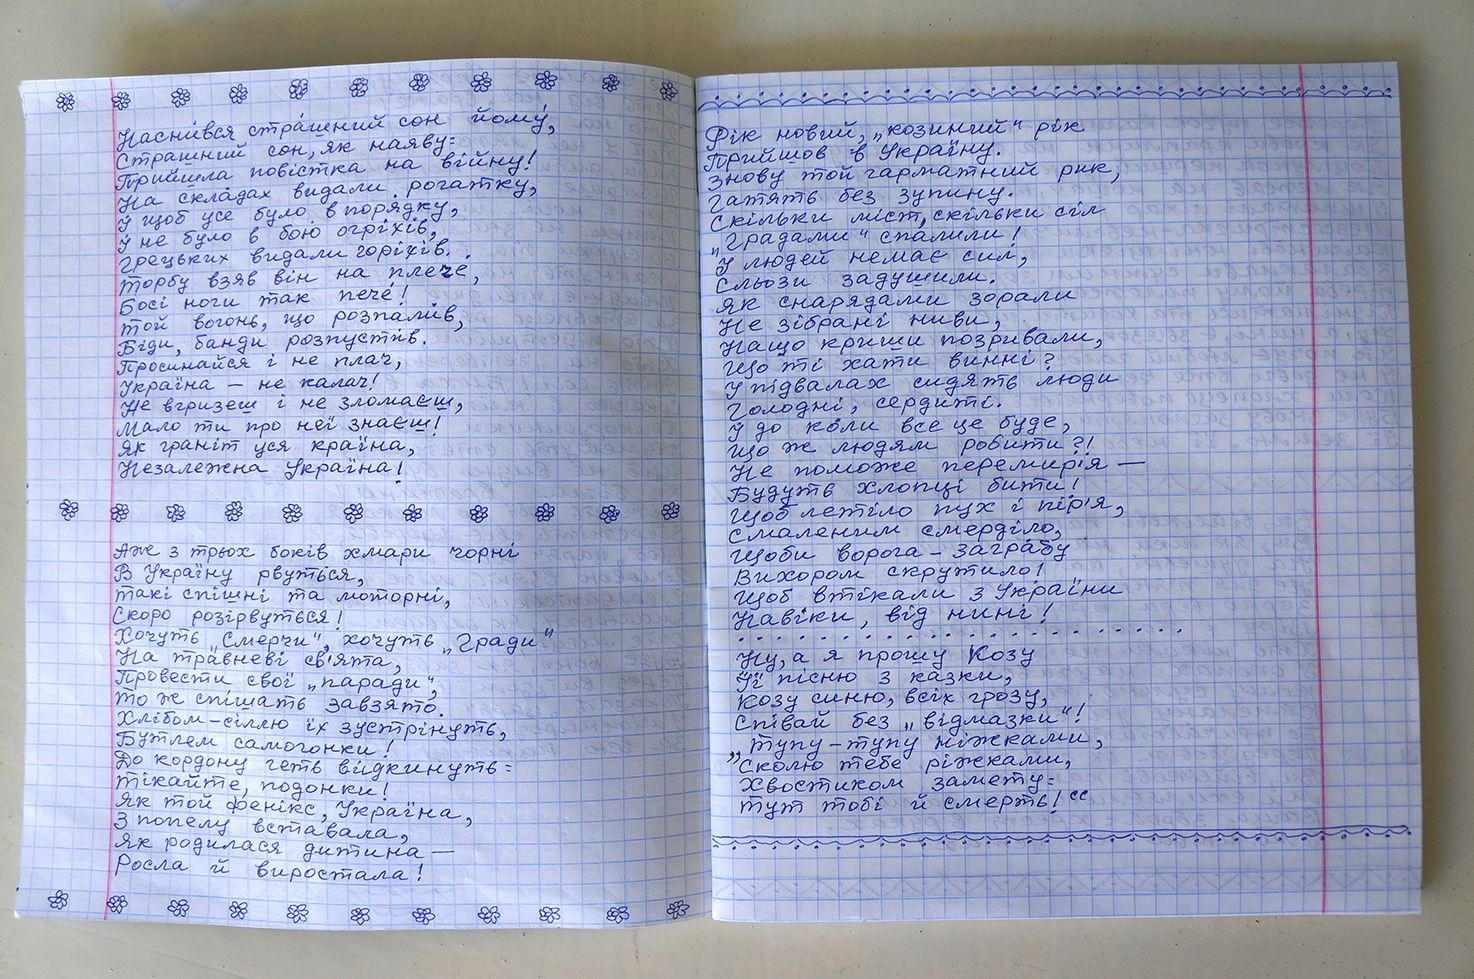 Насни́вся стра́шний сон йому́,
Страшний сон, як наяву:
Прийшла повістка на війну!
На складах видали рогатку,
У щоб усе було в порядку,
У не було в бою огріхів,
Грецьких видали горіхів.
Торбу взяв він на плече,
Босі ноги так пече́!
Той вогонь, що розпали́в,
Біди, банди розпусти́в.
Просинайся і не плач,
Україна — не калач!
Не вгризеш і не зломаєш,
Мало ти про неї знаєш!
Як граніт уся країна,
Незалежна Україна!
Аже з трьох боків хмари чорні
В Україну рвуться,
Такі спішні та моторні,
Скоро розірвуться!
Хочуть „Смерчи", хочуть „Гради"
На тра́вневі свята,
Провести свої „паради",
То ж спішать завзято.
Хлібом-сіллю їх зустрінуть,
Бутлем самогонки!
До кордону геть відкинуть:
Тікайте, подонки!
Як той фенікс, Україна,
З попелу вставала,
Як родилася дитина —
Росла й виростала!
Рік новий, „козиний" рік
Прийшов в Україну.
Знову той гарматний рик,
Гатять без зупину.
Скільки міст, скільки сіл
„Градами" спалили!
У людей немає сил,
Сльози задушили.
Як снарядами зорали
Не зібрані ниви,
Нащо криши позривали,
Що ті хати винні?
У підвалах сидять люди
Голодні, сердиті.
У до ко́ли все це буде,
Що ж людям робити?!
Не поможе перемир'я —
Будуть хлопці бити!
Щоб летіло пух і пір'я,
Смаленим смерділо,
Щоби ворога-загра́бу
Вихором скрутило!
Щоб втікали з України
Навіки, від нині!
. . . . . . . . . . . . . . . . . . . . . . . .
Ну, а я прошу Козу
Її пісню з казки,
Козу синю, всіх грозу,
Співай без „відмазки"!
„Тупу-тупу ніжками,
Сколю тебе ріжками,
Хвостиком замету:
Тут тобі й смерть!"